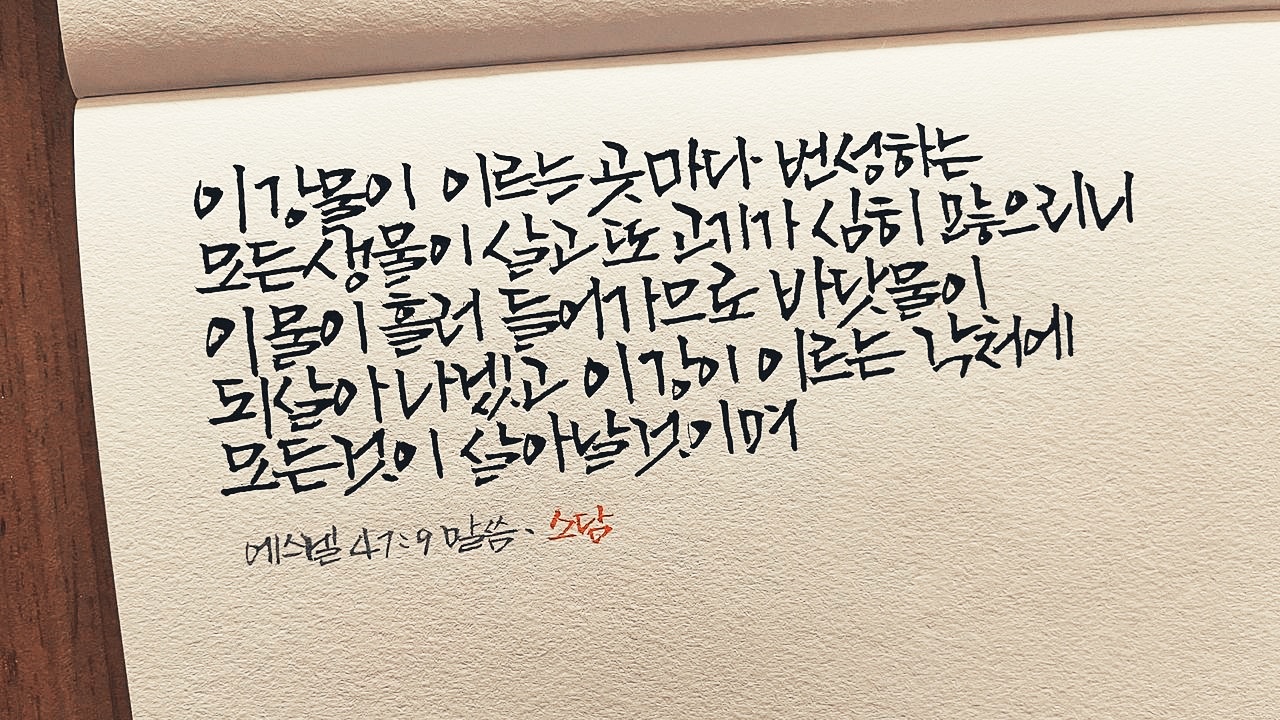 이 강물이 이르는 곳마다 번성하는
모든 생물이 살고 또 고기가 심히 많으리니
이 물이 흘러 들어가므로 바닷물이
되살아 나겠고 이 강이 이르는 각처에
모든 것이 살아날 것이며
에스겔 47:9 말씀. 소담